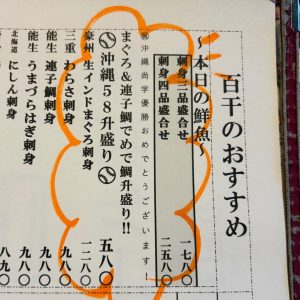 百干のおすすめ
～本日の鮮魚～
刺身三品盛合せ 一七八〇
刺身四品盛合せ 二五八〇
㊗沖縄尚学優勝おめでとうございます！
沖縄58升盛り 五八〇
まぐろ&連子鯛でめで鯛升盛り!!
豪州 生インドまぐろ刺身 一二八〇
三重 わらさ刺身 九八〇
能生 連子鯛刺身 九八〇
能生 うまづらはぎ刺身 九八〇
北海道 にしん刺身 八九〇